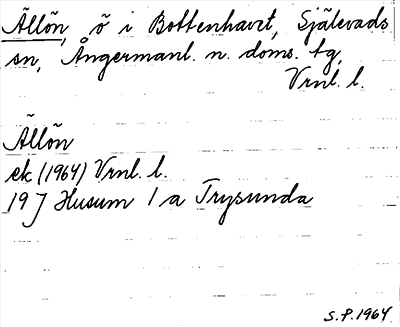 Ällön, ö i Bottenhavet, Själevads
sn, Ångermanl. n. doms. tg,
Vrnl. l.
Ällön
ek (1964) Vrnl. l.
19 J Husum 1 a Trysunda
S.P. 1964